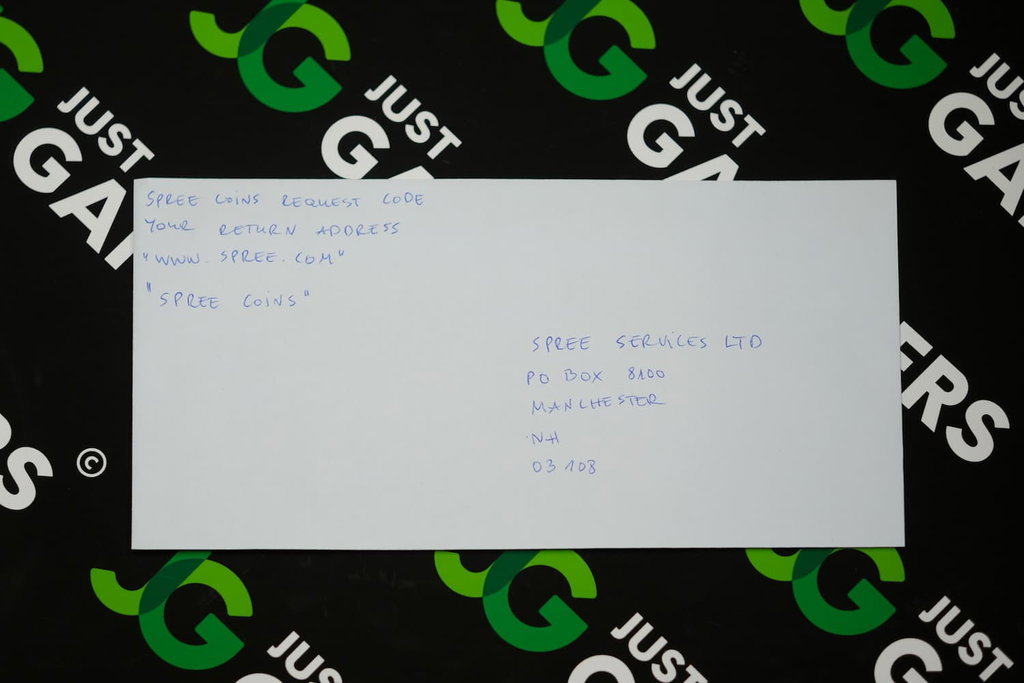 JUST
GA
JUST
G
JUST
GA
JUST
GA
SPREE COINS REQUEST CODE
YOUR RETURN ADDRESS
"WWW.SPREE.COM"
"SPREE COINS"
SPREE SERVICES LTD
PO BOX 8100
MANCHESTER
NH
03108
ERS
RS ©
JUST
JUST
JUST
G